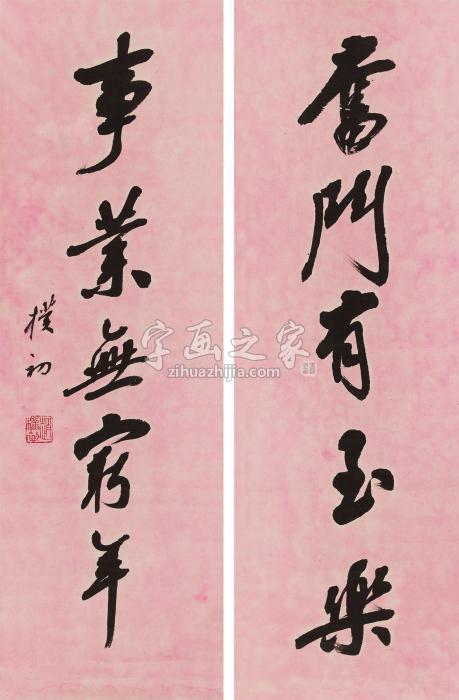 奮鬥有至樂
事業無窮年
樸初
字画之家
zihuazhijia.com